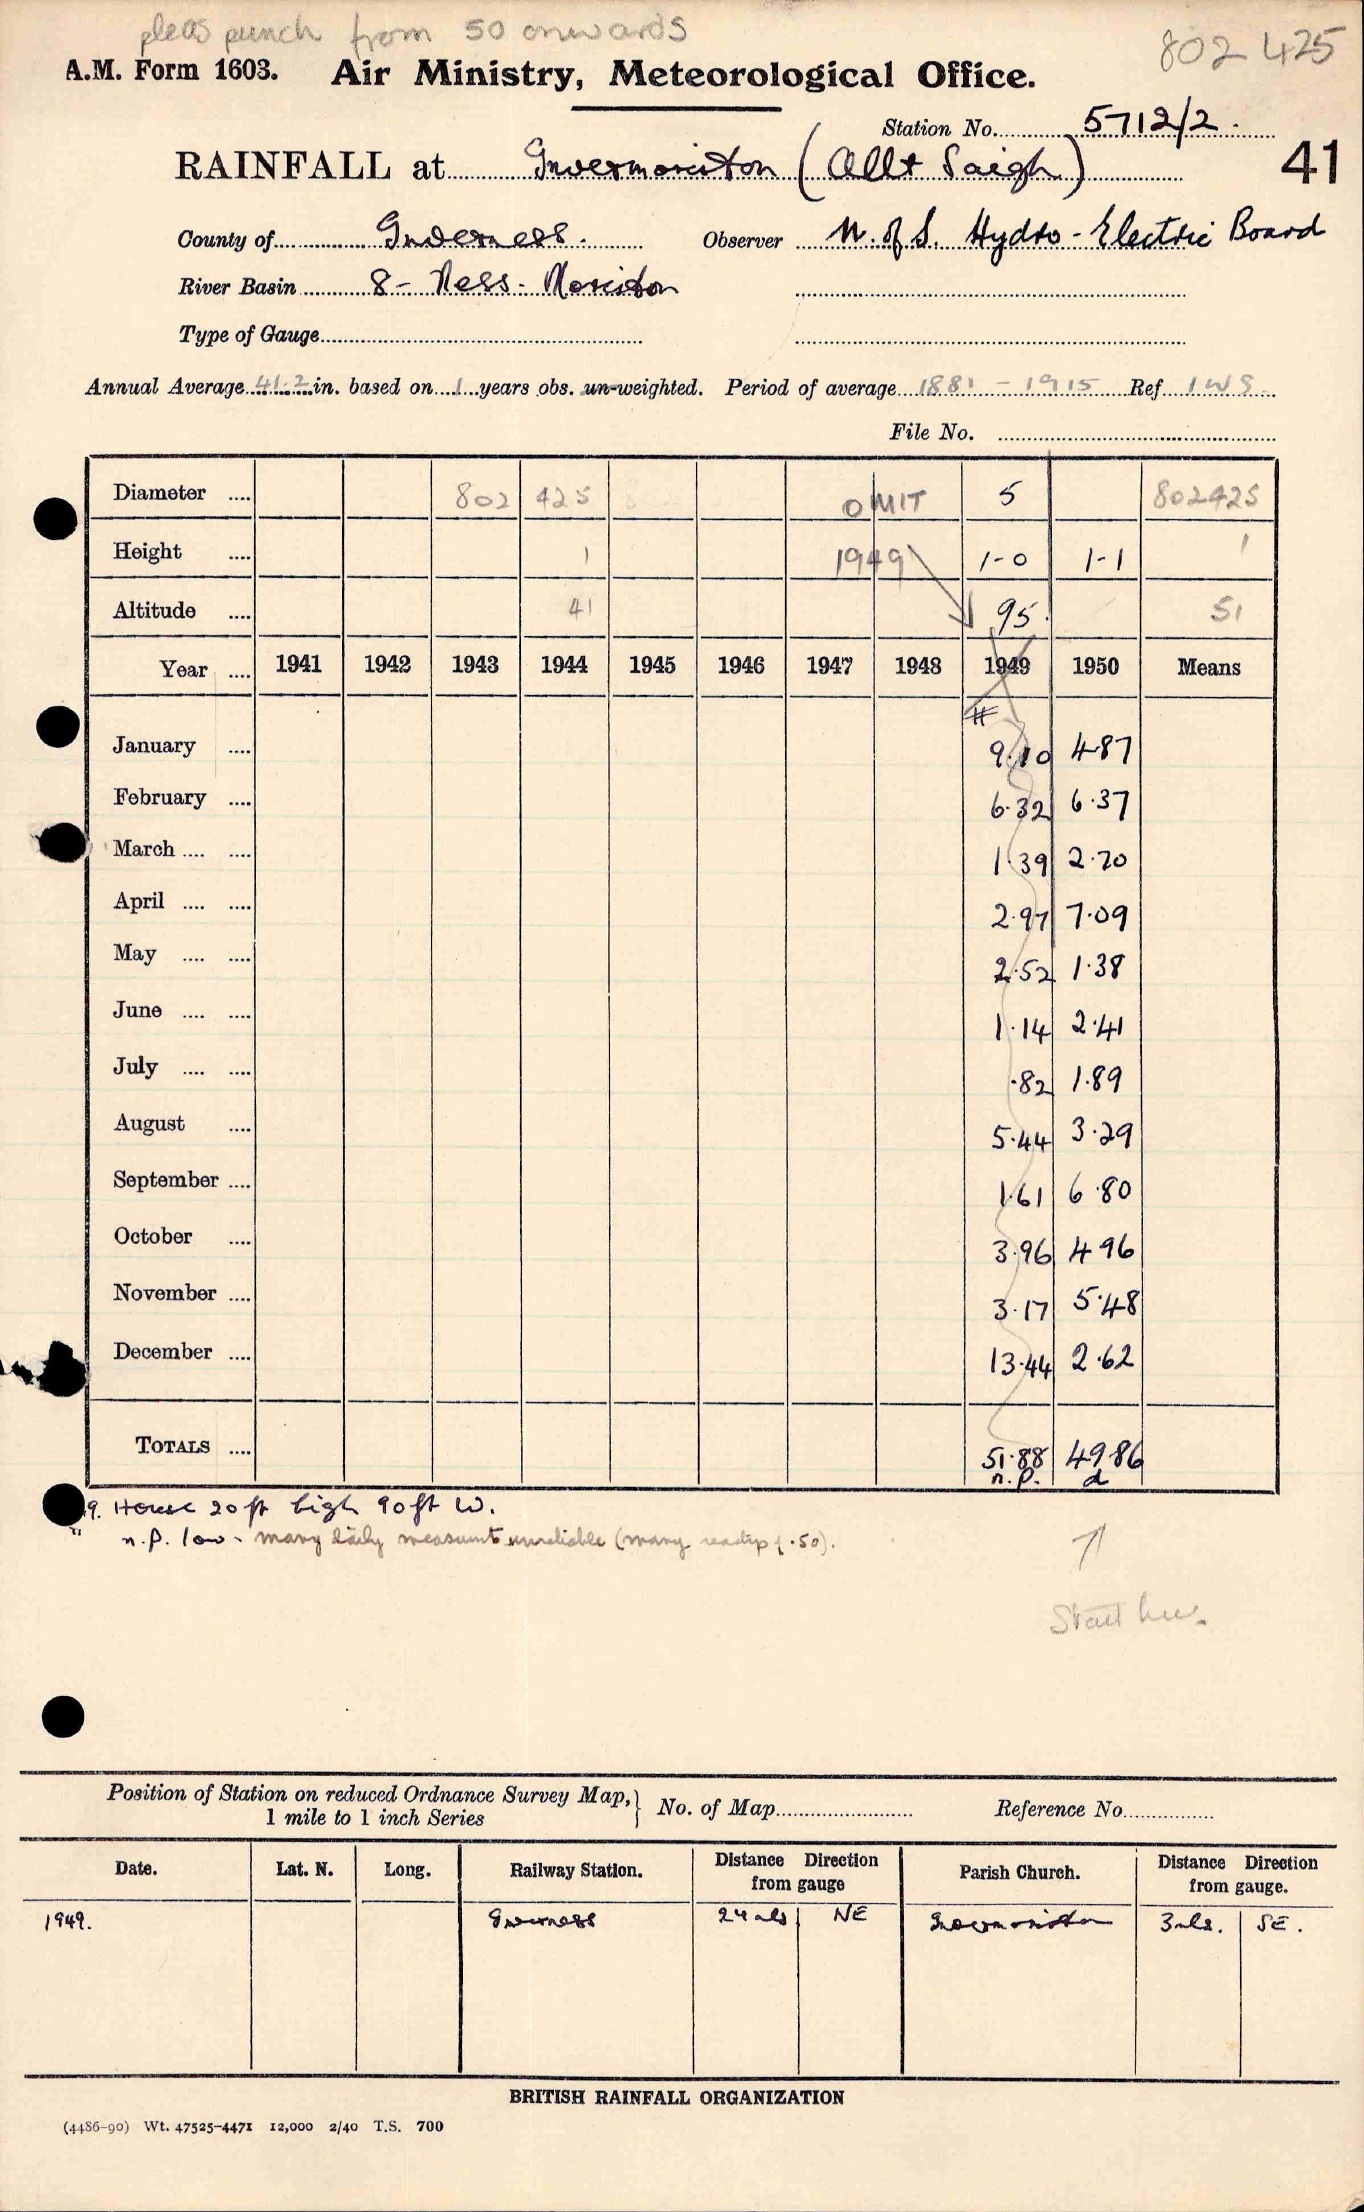 pleas punch from 50 onwards
802 425
A.M. Form 1603. Air Ministry, Meteorological Office.
Station No. 5712/2.
RAINFALL at Invermoriston (Allt Saigh)
41
County of Inverness. Observer N. of S. Hydro-Electric Board
River Basin 8 - Ness - Moriston
Type of Gauge
Annual Average 41.2 in. based on 1 years obs. un-weighted. Period of average 1881 - 1915 Ref
File No.
Diameter .... 802 425 OMIT 5 802425
Height .... 1 1949 1-0 1-1 1
Altitude .... 41 95. 51
Year .... 1941 1942 1943 1944 1945 1946 1947 1948 1949 1950 Means
#
January .... 9.10 4.87
February .... 6.32 6.37
March .... .... 1.39 2.70
April .... .... 2.97 7.09
May .... .... 2.52 1.38
June .... .... 1.14 2.41
July .... .... .82 1.89
August .... 5.44 3.29
September .... 1.61 6.80
October .... 3.96 4.96
November .... 3.17 5.48
December .... 13.44 2.62
TOTALS .... 51.88 49.86
n.p. d
9. House 20 ft high 90 ft W.
" n.p. low - many daily measmts unreliable (many readgs of .50).
Start here.
Position of Station on reduced Ordnance Survey Map, 1 mile to 1 inch Series } No. of Map Reference No.
Date. Lat. N. Long. Railway Station. Distance Direction from gauge Parish Church. Distance Direction from gauge.
1949. Inverness 24 mls NE Invermoriston 3 mls. SE.
BRITISH RAINFALL ORGANIZATION
(4486-90) Wt. 47525-4471 12,000 2/40 T.S. 700